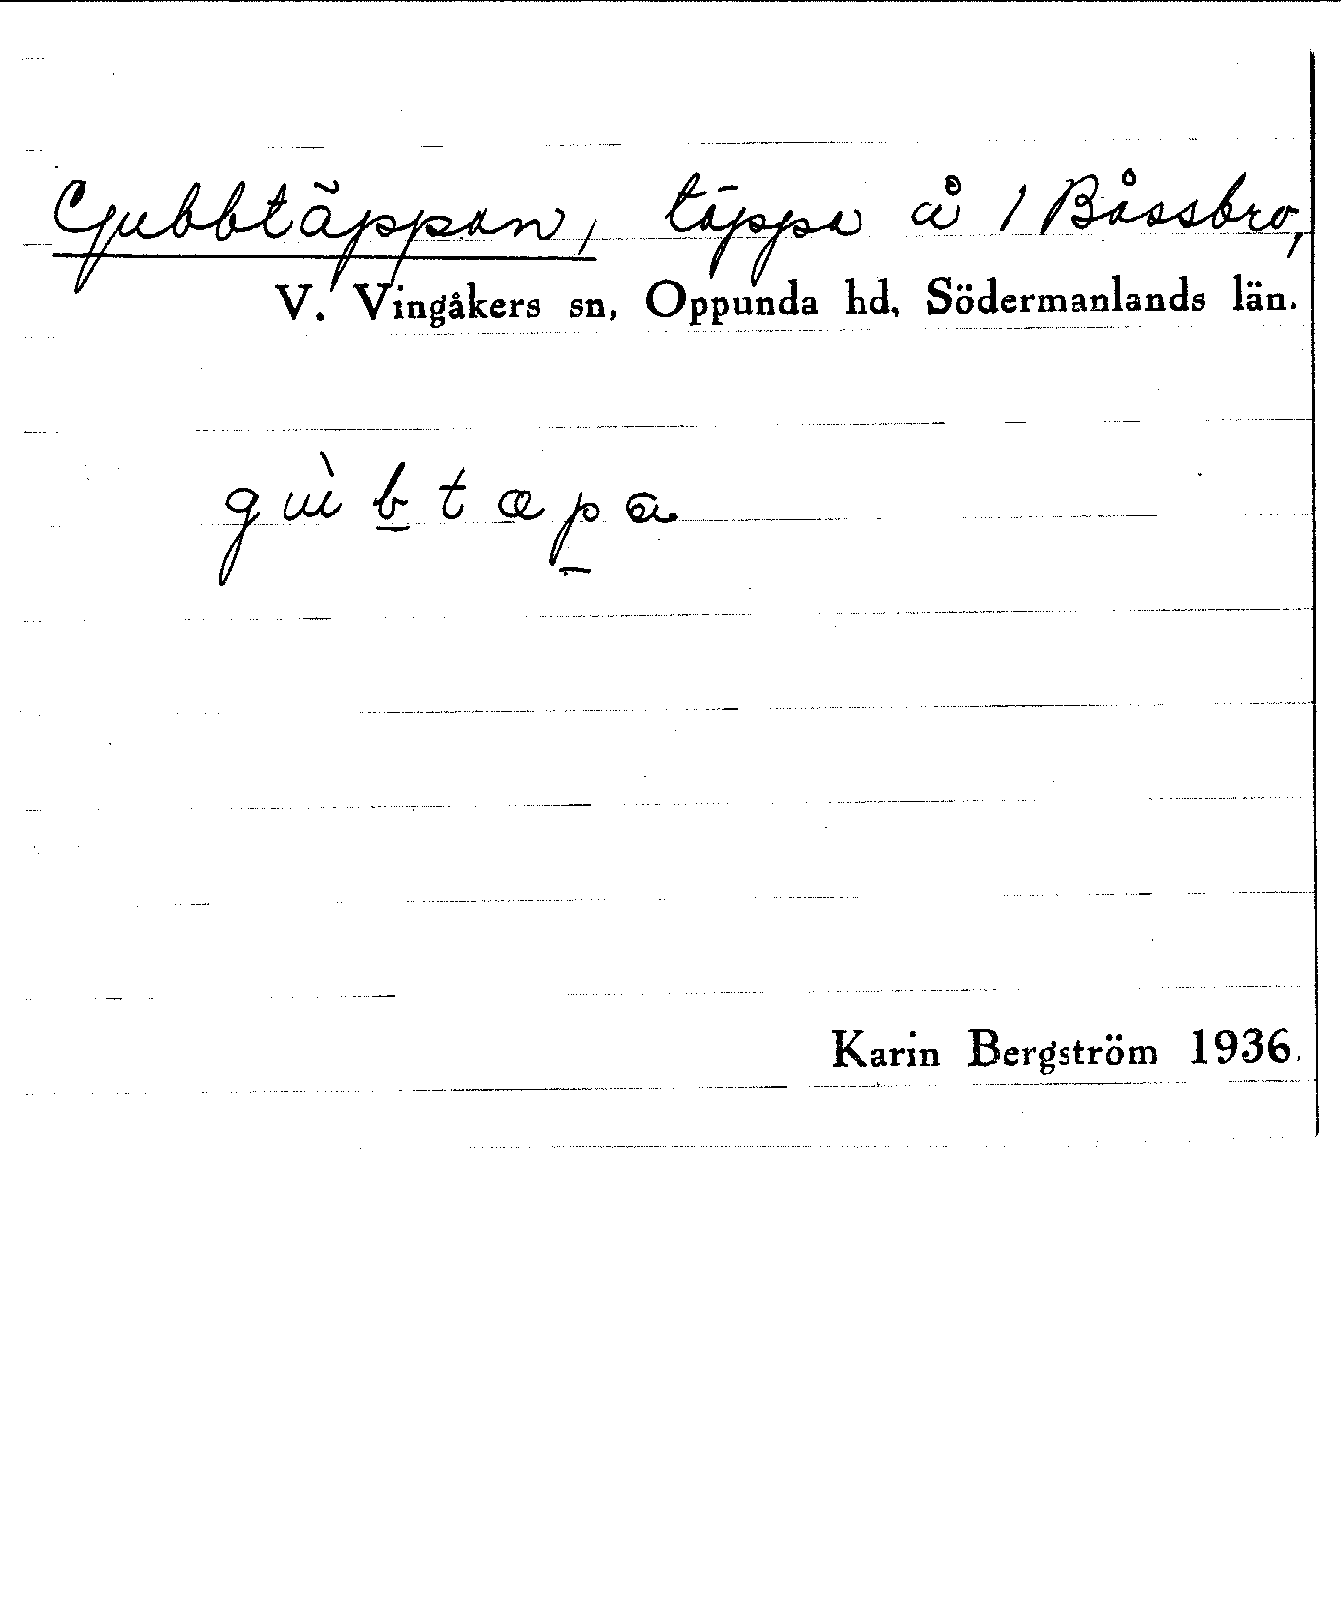 Gubbtäppan, täppa å 1 Båssbro,
V. Vingåkers sn, Oppunda hd, Södermanlands län.
gùb̲tæp̲a
Karin Bergström 1936.